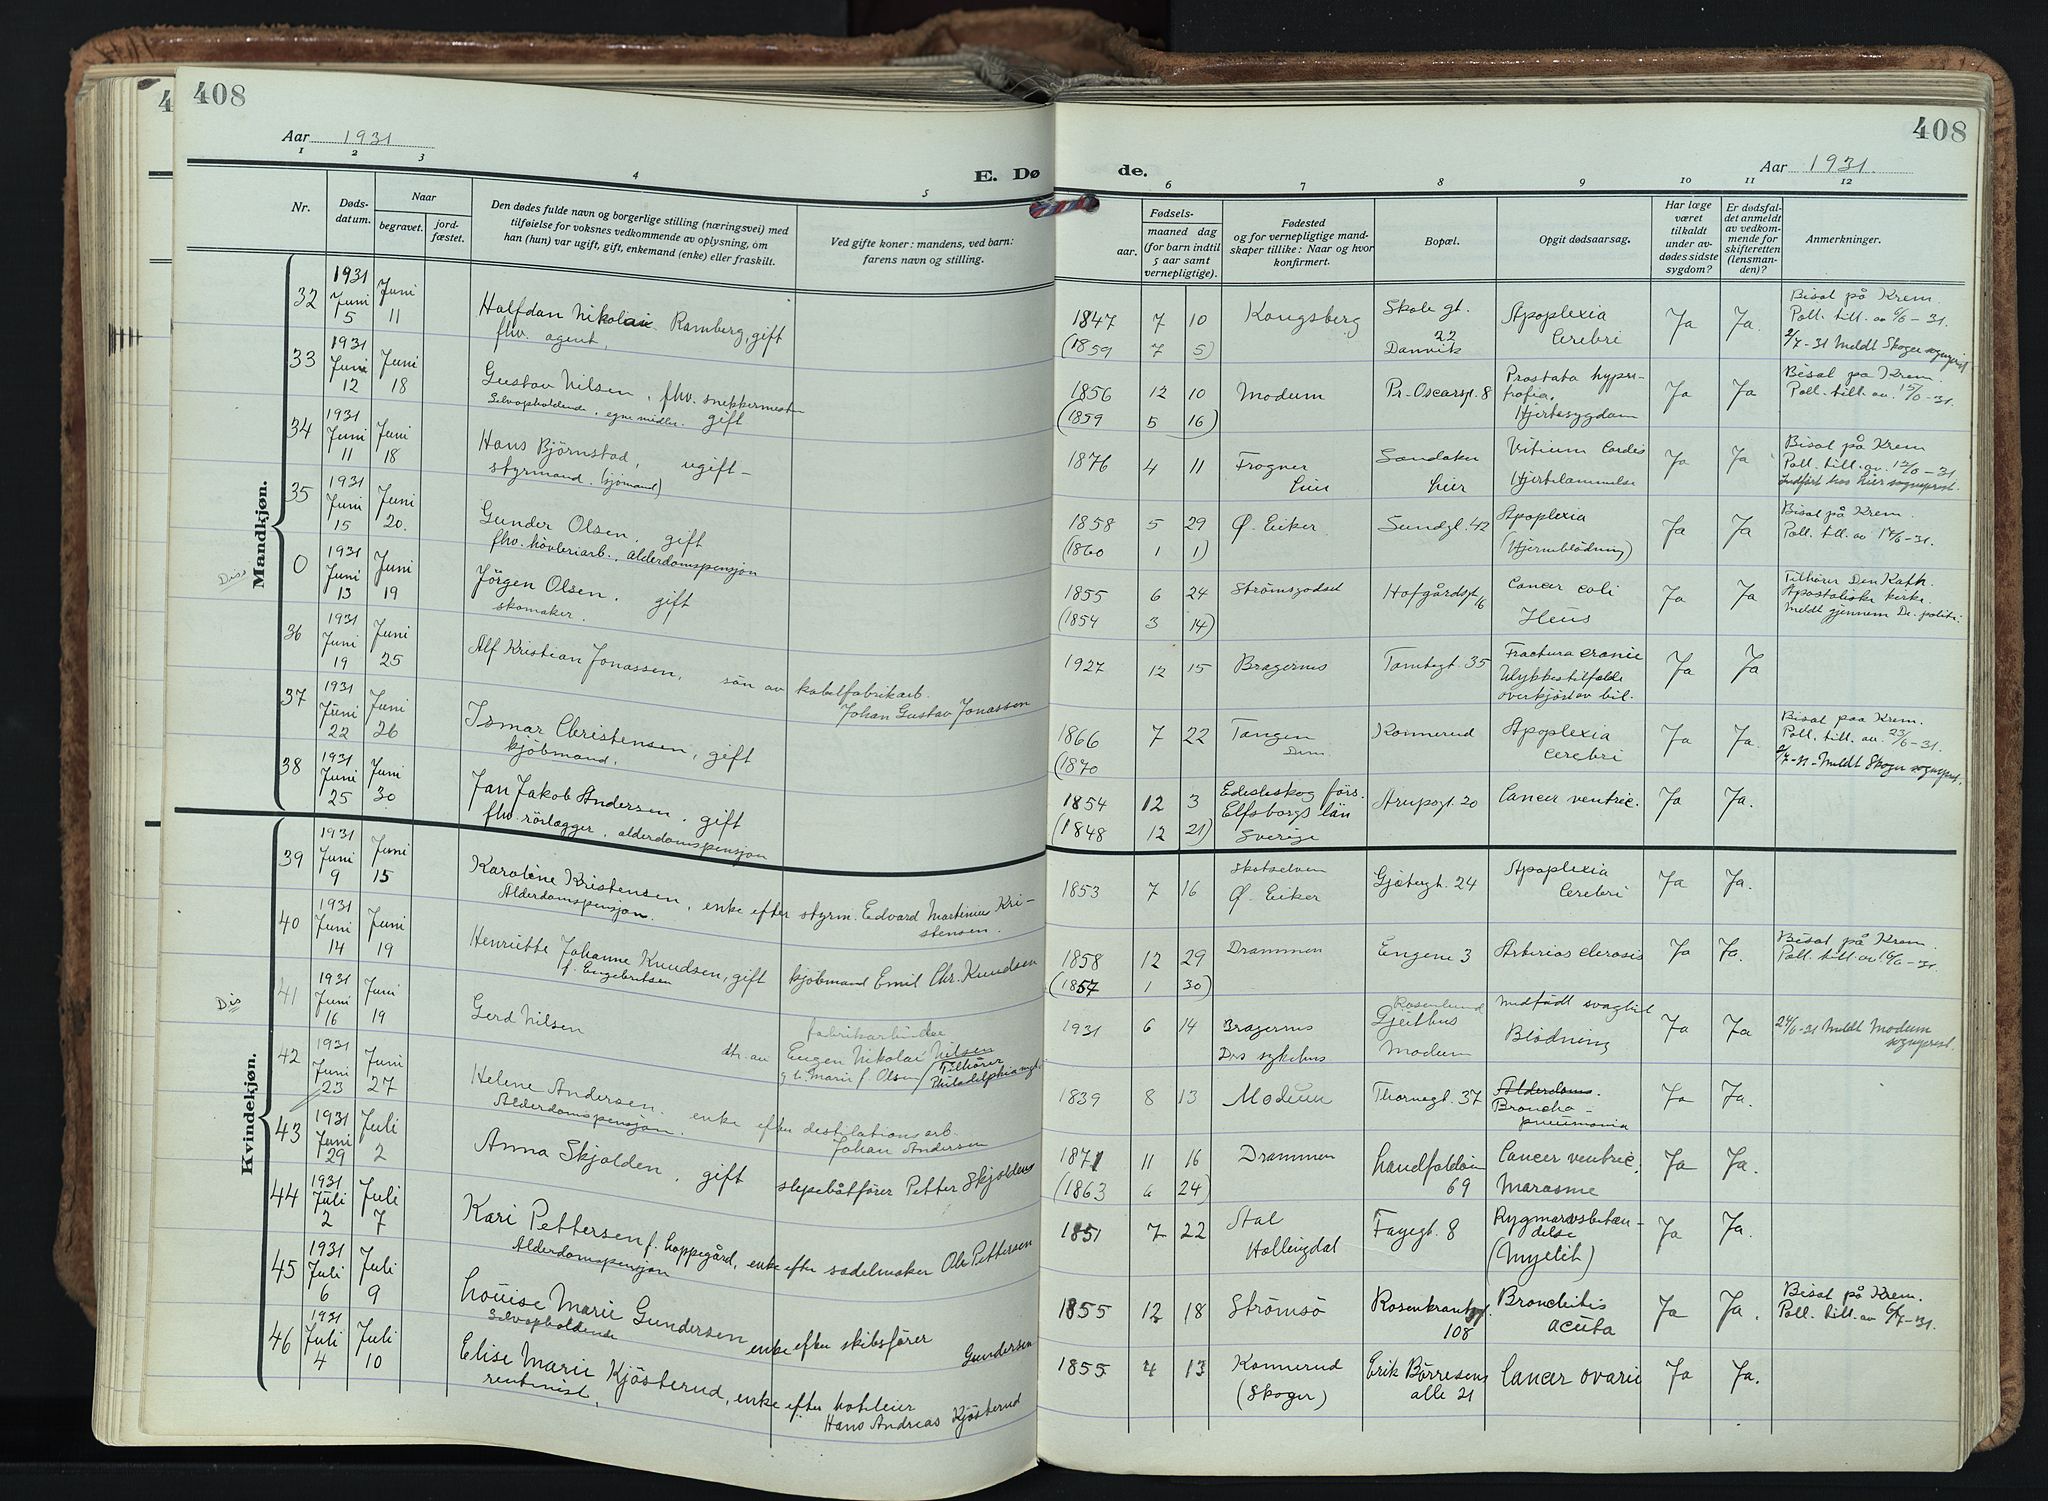 408
Aar 1931
1 2 3 4 5
E. Dø
Nr.
Døds-
datum.
Naar
begravet.
jord-
fæstet.
Den dødes fulde navn og borgerlige stilling (næringsvei) med
tilføielse for voksnes vedkommende av oplysning, om
han (hun) var ugift, gift, enkemand (enke) eller fraskilt.
Ved gifte koner: mandens, ved barn:
farens navn og stilling.
Mandkjøn.
32 1931 Juni 5 Juni 11 Halfdan Nikolai Ramberg, gift
fhv. agent.
33 1931 Juni 12 Juni 18 Gustav Nilsen, fhv. snekkermester
Selvopholdende, egne midler. gift
34 1931 Juni 11 Juni 18 Hans Björnstad, ugift -
styrmand. (sjömand)
35 1931 Juni 15 Juni 20. Gunder Olsen. gift
fhv. hövleriarb. alderdomspensjon
Diss 0 1931 Juni 13 Juni 19 Jörgen Olsen. gift
skomaker.
36 1931 Juni 19 Juni 25 Alf Kristian Jonassen, sön av kabelfabrikarb.
Johan Gustav Jonassen
37 1931 Juni 22 Juni 26 Ismar Christensen, gift
kjöbmand.
38 1931 Juni 25 Juni 30 Jan Jakob Andersen. gift
fhv. rörlægger, alderdomspensjon
Kvindekjøn.
39 1931 Juni 9 Juni 15 Karoline Kristensen, enke efter styrm. Edvard Martinius Kri-
Alderdomspensjon. stensen.
40 1931 Juni 14 Juni 19 Henriette Johanne Knudsen, gift kjöbmand Emil Chr. Knudsen
f. Engebretsen
Dis 41 1931 Juni 16 Juni 19 Gerd Nilsen fabrikarbeider
dtr. av Eugen Nikolai Nilsen
g.t. Marie f. Olsen / Tilhörer
Philadelphia mgt.
42 1931 Juni 23 Juni 27 Helene Andersen. enke efter destilationsarb.
Alderdomspensjon Johan Andersen
43 1931 Juni 29 Juli 2 Anna Skjolden, gift slepebåtförer Petter Skjolden
44 1931 Juli 2 Juli 7 Kari Pettersen f. Hoppegård, enke efter sadelmaker Ole Pettersen
Alderdomspensjon
45 1931 Juli 6 Juli 9 Louise Marie Gundersen enke efter skibsförer
Selvopholdende Gundersen
46 1931 Juli 4 Juli 10 Elise Marie Kjösterud, enke efter hoteleier
rentenist. Hans Andreas Kjösterud
408
de.
Aar 1931.
6 7 8 9 10 11 12
Fødsels-
aar. maaned dag
(for barn indtil
5 aar samt
vernepligtige).
Fødested
og for vernepligtige mand-
skaper tillike: Naar og hvor
konfirmert.
Bopæl.
Opgit dødsaarsag.
Har læge
været
tilkaldt
under av-
dødes sidste
sygdom?
Er dødsfal-
det anmeldt
av vedkom-
mende for
skifteretten
(lensman-
den)?
Anmerkninger.
1847 7 10 Kongsberg Skole gt. 22 Apoplexia Ja Ja. Bisat på Krem.
Poll. till. av 6/6-31.
(1859 7 5) Danvik Cerebri 2/7-31 Meldt Skoger sogneprest.
1856 12 10 Modum Pr. Oscarsgt. 8 Prostata hyper- Ja Ja Bisat på Krem.
trofia. Poll. till. av. 15/6-31.
(1859 5 16) Hjertesygdom
1876 4 11 Frogner Sandaker Vitium Cordis Ja Ja Bisat på Krem
Poll. till. av. 13/6-31
Lier Lier Hjertelammelse Indfört hos Lier sogneprest.
1858 5 29 Ø. Eiker Sundgt. 42 Apoplexia Ja Ja Bisat på Krem.
(1860 1 1) (Hjerneblödning) Poll. till. av 17/6-31.
1855 6 24 Strömsgodset Hofgårdsgt 16 Cancer coli Ja Ja Tilhörer Den Kath.
Apostoliske kirke.
(1854 3 14) Ileus Meldt gjennem Dr. politi
1927 12 15 Bragernes Tomtegt. 35 Fractura cranie Ja Ja
Ulykkestilfelde
overkjört av bil.
1866 7 22 Tangen Konnerud Apoplexia Ja Ja. Bisat paa Krem.
Poll. till. av 23/6-31.
(1870 Dram. Cerebri Meldt Skoger sogneprest.
1854 12 3 Edesleskog förs. Arupsgt. 20 Cancer ventric. Ja Ja.
Elfsborgs län
(1848 12 21) Sverige
Skotselven
1853 7 16 Ø. Eiker Gjetergt. 24 Apoplexia Ja Ja.
Cerebri
1858 12 29 Drammen Engene 3 Arteriosclerosis Ja Ja. Bisat på Krem.
(1857 1 30) Poll. till. av 16/6-31.
Rosenlund
1931 6 14 Bragernes Gjeithus Medfödt svaghet Ja Ja 24/6-31 Meldt Modum
Drs sykehus Modum Blödning sogneprest.
1839 8 13 Modum Thornegt. 37 Alderdoms. Ja Ja.
Broncho-
pneumonia
1871 11 16 Drammen Landfaldöen Cancer ventric. Ja Ja.
(1863 6 24) 69 Marasme
1851 7 22 Aal Fayegt. 8 Rygmarvsbetæn- Ja Ja.
Hallingdal delse
(Myelit)
1855 12 18 Strömsö Rosenkrantzgt. Bronchitis Ja Ja. Bisat på Krem.
108 acuta Poll. till. av 6/7-31.
1855 4 13 Konnerud Erik Börresens Cancer ovarie Ja Ja.
(Skoger) alle 21